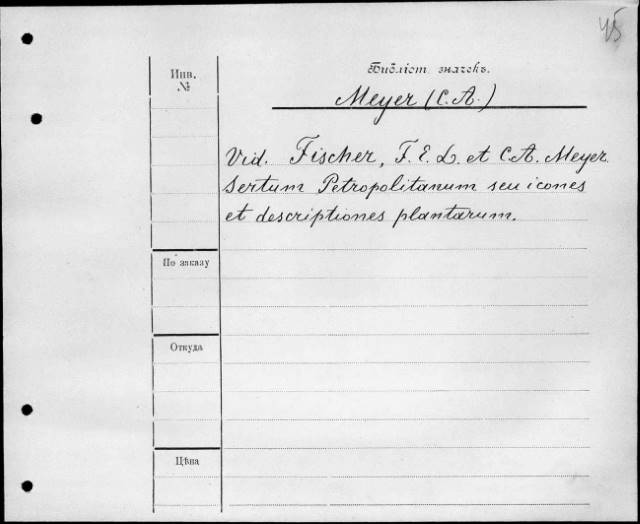 45
Инв.
№
Библіот. значекъ.
Meyer (C. A.)
Vid. Fischer, F. E. L. et C. A. Meyer.
Sertum Petropolitanum seu icones
et descriptiones plantarum.
По заказу
Откуда
Цѣна